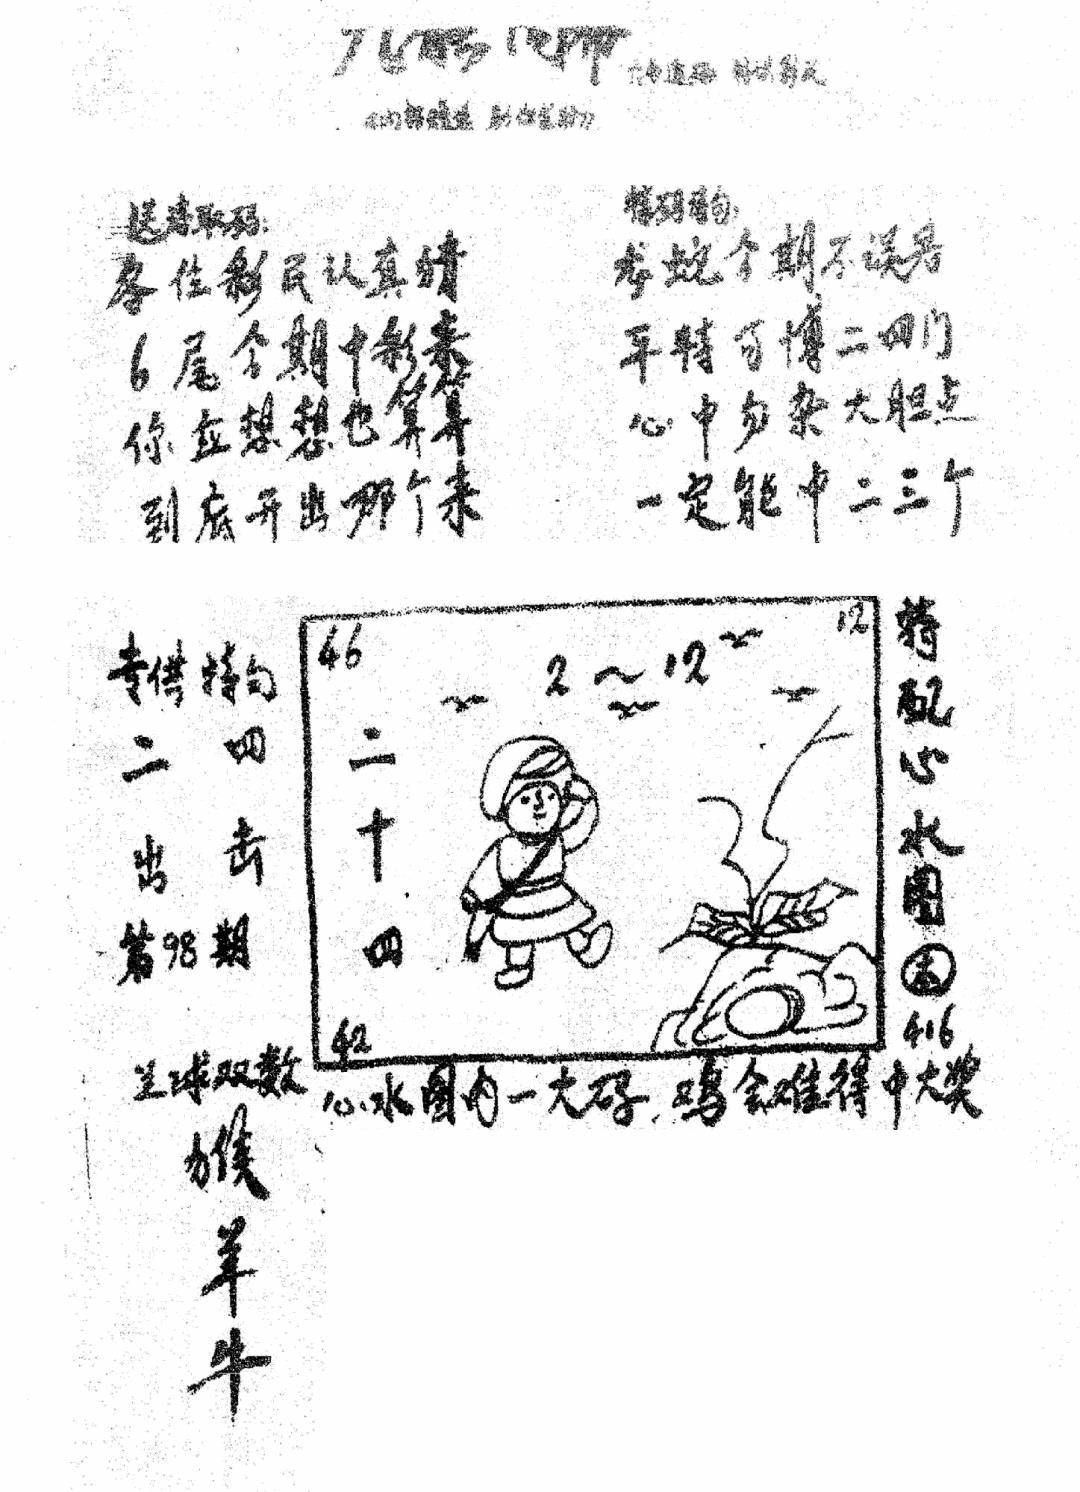 送诗取码:
各位彩民认真猜
6尾个期中彩来
你应想想也算算
到底开出那个来
特码诗句:
龙蛇个期不误君
平特可博二四门
心中勿杂大胆点
一定能中二三个
专供特句
二四
出击
第98期
兰球双数
猴
羊
牛
46
2～12
12
二十四
42
特配心水图
416
心水图内一大码,鸡会难得中大奖